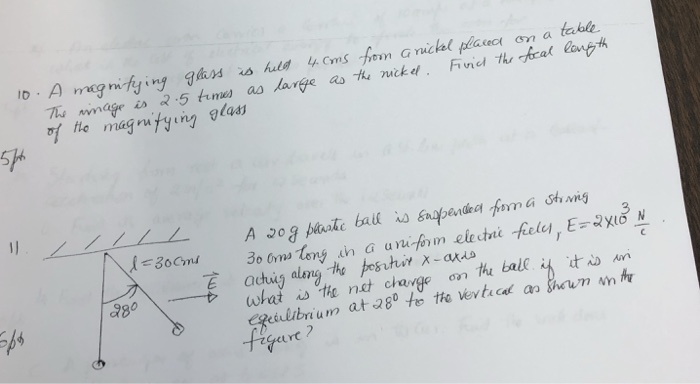 10. A magnifying glass is held 4 cms from a nickel placed on a table
The image is 2.5 times as large as the nickel. Find the focal length
of the magnifying glass
5pts
11.
A 20g plastic ball is suspended from a string
30 cms long in a uniform electric field, E = 2x10³ N/C
acting along the positive x-axis
what is the net charge on the ball if it is in
equilibrium at 28° to the vertical as shown in the
figure?
l = 30 cms
E
28°